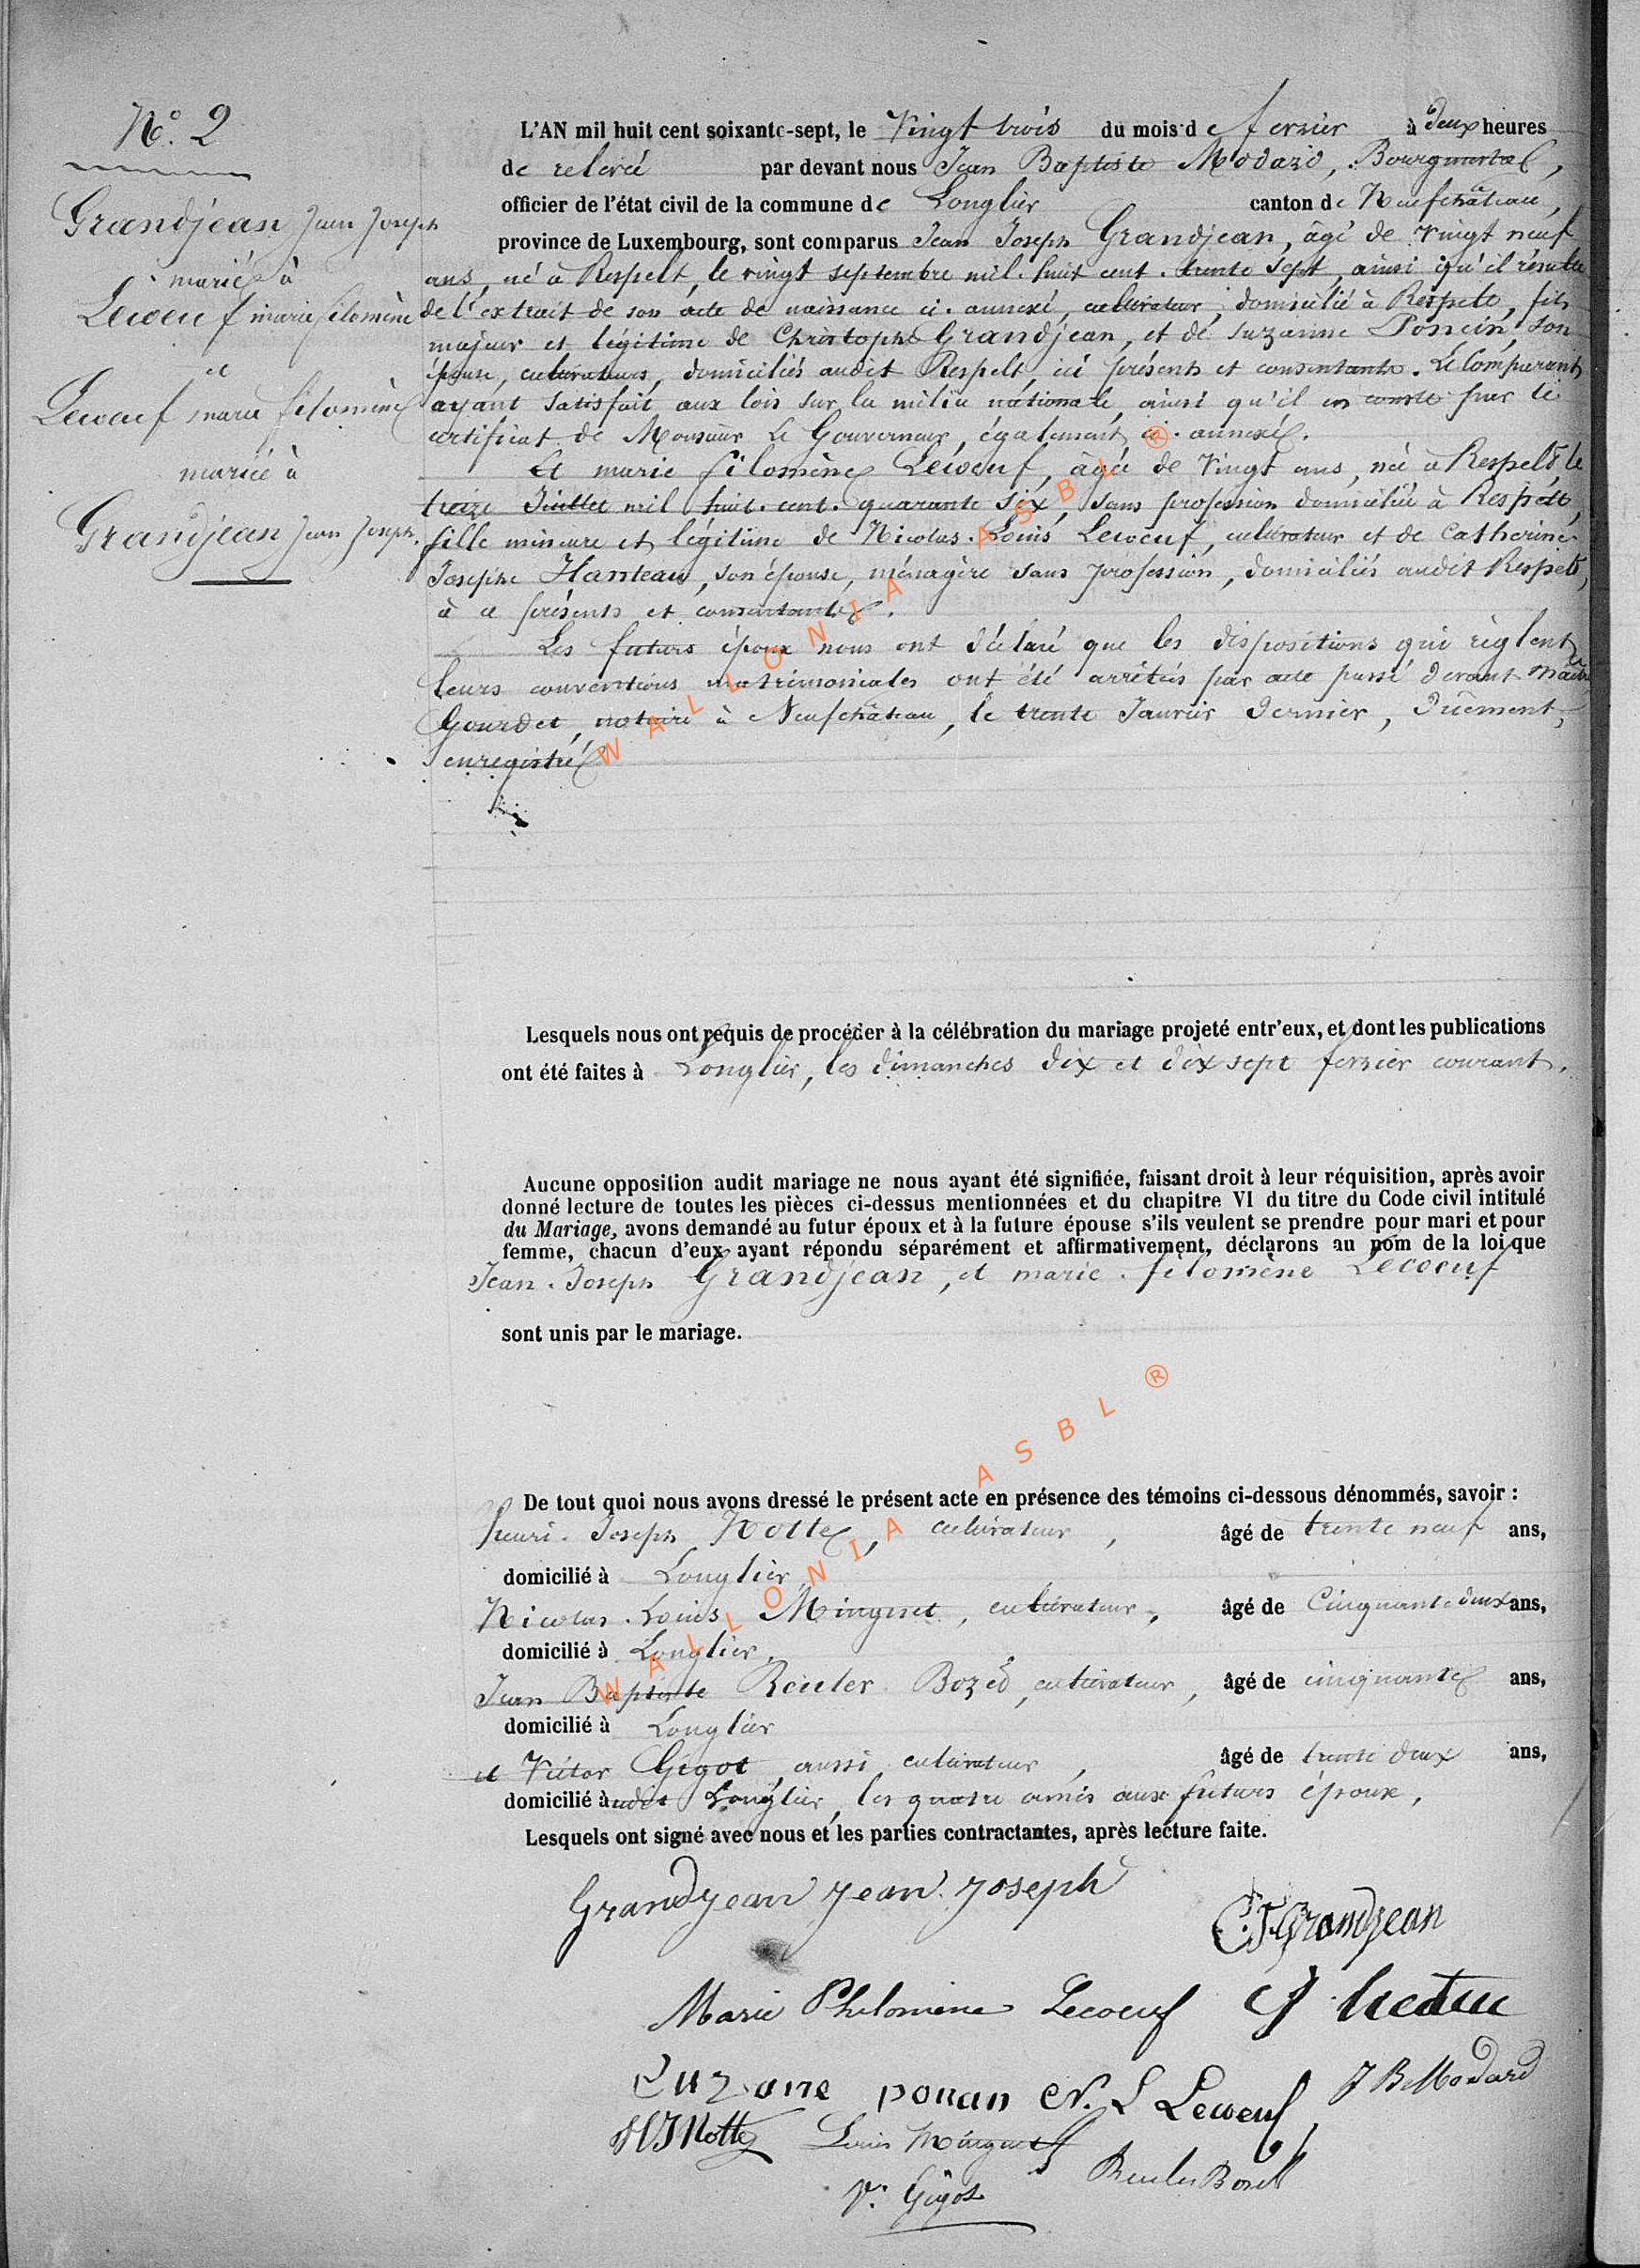 N° 2
Grandjean Jean Joseph
marié à
Lecoeuf marie filomène
et
Lecoeuf marie filomène
mariée à
Grandjean Jean Joseph.
L'AN mil huit cent soixante-sept, le Vingt trois du mois de fevrier à deux heures
de relevée par devant nous Jean Baptiste Modard, Bourgmestre,
officier de l'état civil de la commune de Longlier canton de Neufchâteau,
province de Luxembourg, sont comparus Jean Joseph Grandjean, âgé de vingt neuf
ans, né à Respelt, le vingt septembre mil huit cent trente sept, ainsi qu'il résulte
de l'extrait de son acte de naissance ci-annexé, cultivateur, domicilié à Respelt, fils
majeur et légitime de Christophe Grandjean, et de Suzanne Poncin, son
épouse, cultivateurs, domiciliés audit Respelt, ici présents et consentants. Le Comparant
ayant satisfait aux lois sur la milice nationale, ainsi qu'il en conste par le
certificat de Monsieur Le Gouverneur, également ci-annexé.
Et marie filomène Lecoeuf, âgée de Vingt ans, née à Respelt, le
treize Juillet mil huit cent quarante six, sans profession domiciliée à Respelt,
fille mineure et légitime de Nicolas Louis Lecoeuf, cultivateur et de Catherine
Josephe Hanteau, son épouse, ménagère sans profession, domiciliés audit Respelt,
à ce présents et consentants.
Les futurs époux nous ont déclaré que les dispositions qui règlent
leurs conventions matrimoniales ont été arrêtées par acte passé devant Maître
Gourdet, notaire à Neufchâteau, le trente Janvier dernier, dûement
enregistré
Lesquels nous ont requis de procéder à la célébration du mariage projeté entr'eux, et dont les publications
ont été faites à Longlier, les dimanches dix et dix sept fevrier courant.
Aucune opposition audit mariage ne nous ayant été signifiée, faisant droit à leur réquisition, après avoir
donné lecture de toutes les pièces ci-dessus mentionnées et du chapitre VI du titre du Code civil intitulé
du Mariage, avons demandé au futur époux et à la future épouse s'ils veulent se prendre pour mari et pour
femme, chacun d'eux ayant répondu séparément et affirmativement, déclarons au nom de la loi que
Jean Joseph Grandjean, et marie filomène Lecoeuf
sont unis par le mariage.
De tout quoi nous avons dressé le présent acte en présence des témoins ci-dessous dénommés, savoir :
henri Joseph Notte, cultivateur, âgé de trente neuf ans,
domicilié à Longlier
Nicolas Louis Minguet, cultivateur, âgé de Cinquante deux ans,
domicilié à Longlier,
Jean Baptiste Reuler Bozed, cultivateur, âgé de cinquante ans,
domicilié à Longlier
et Victor Gigot, aussi cultivateur, âgé de trente deux ans,
domicilié audit Longlier, les quatre amis aux futurs époux,
Lesquels ont signé avec nous et les parties contractantes, après lecture faite.
Grandjean Jean Joseph
CJ Grandjean
Marie Philomène Lecoeuf
Suzane
N. L Lecoeuf
J B Modard
HJ Notte
Louis Minguet
V. Gigot
WALLONIA ASBL ®
WALLONIA ASBL ®